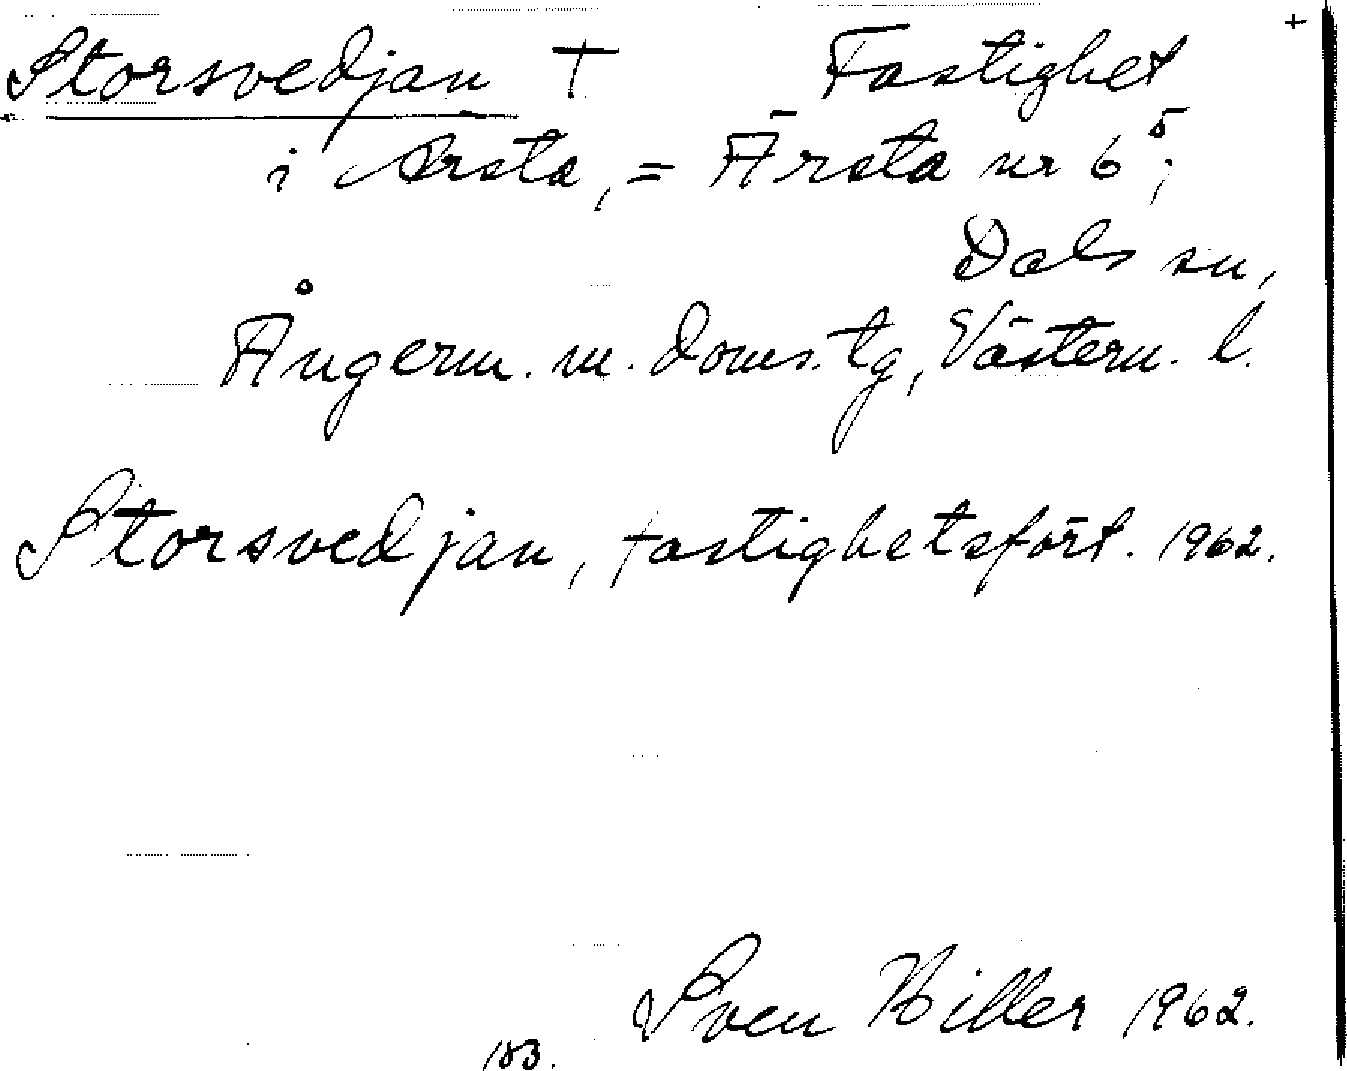 Storsvedjan † Fastighet +
i Ärsta, = Ärsta nr 6⁵;
Dals sn,
Ångerm. m. doms. tg, Västern. l.
Storsvedjan, fastighetsfört. 1962.
Sven Hiller 1962.
183.